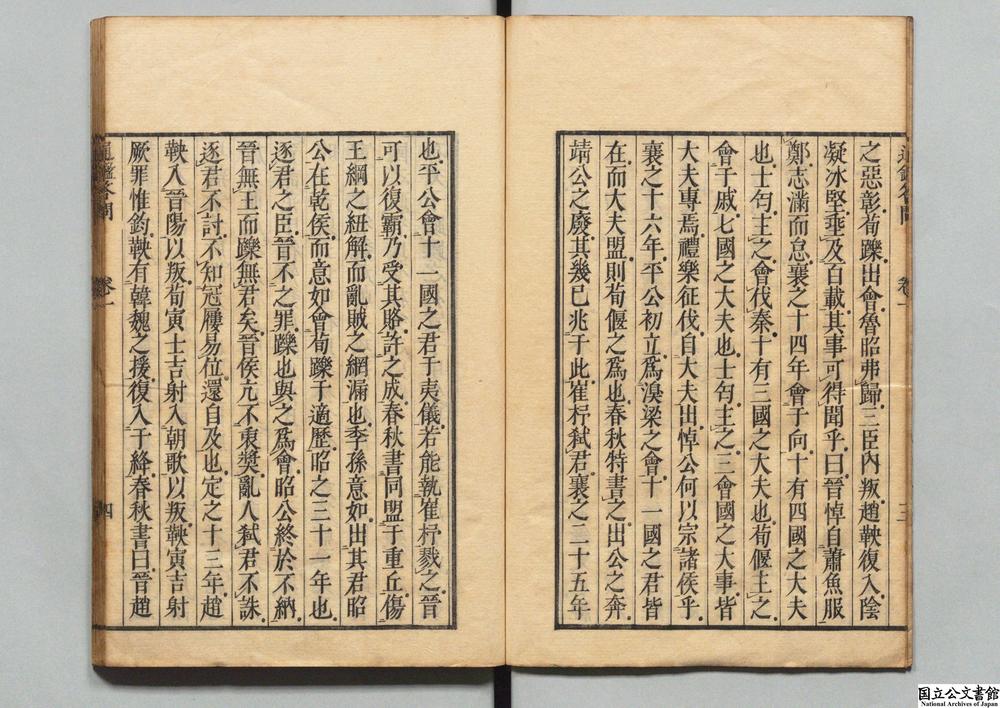 之惡彰荀躒出會魯昭弗歸三臣內叛趙鞅復入陰
凝冰堅垂及百載其事可得聞乎曰晉悼自蕭魚服
鄭志滿而怠襄之十四年會于向十有四國之大夫
也士匄主之會伐秦十有三國之大夫也荀偃主之
會于戚七國之大夫也士匄主之三會國之大事皆
大夫專焉禮樂征伐自大夫出悼公何以宗諸侯乎
襄之十六年平公初立爲溴梁之會十一國之君皆
在而大夫盟則荀偃之爲也春秋特書之出公之奔
靖公之廢其幾已兆于此崔杼弑君襄之二十五年
通鑑答問
卷一
三
也平公會十一國之君于夷儀若能執崔杼戮之晉
可以復霸乃受其賂許之成春秋書同盟于重丘傷
王綱之紐解而亂賊之網漏也季孫意如出其君昭
公在乾侯而意如會荀躒于適歷昭之三十一年也
逐君之臣晉不之罪躒也與之爲會昭公終於不納
晉無王而躒無君矣晉侯亢不衷獎亂人弑君不誅
逐君不討不知冠屨易位還自及也定之十三年趙
鞅入晉陽以叛荀寅士吉射入朝歌以叛鞅寅吉射
厥罪惟鈞鞅有韓魏之援復入于絳春秋書曰晉趙
通鑑答問
卷一
四
国立公文書館
National Archives of Japan